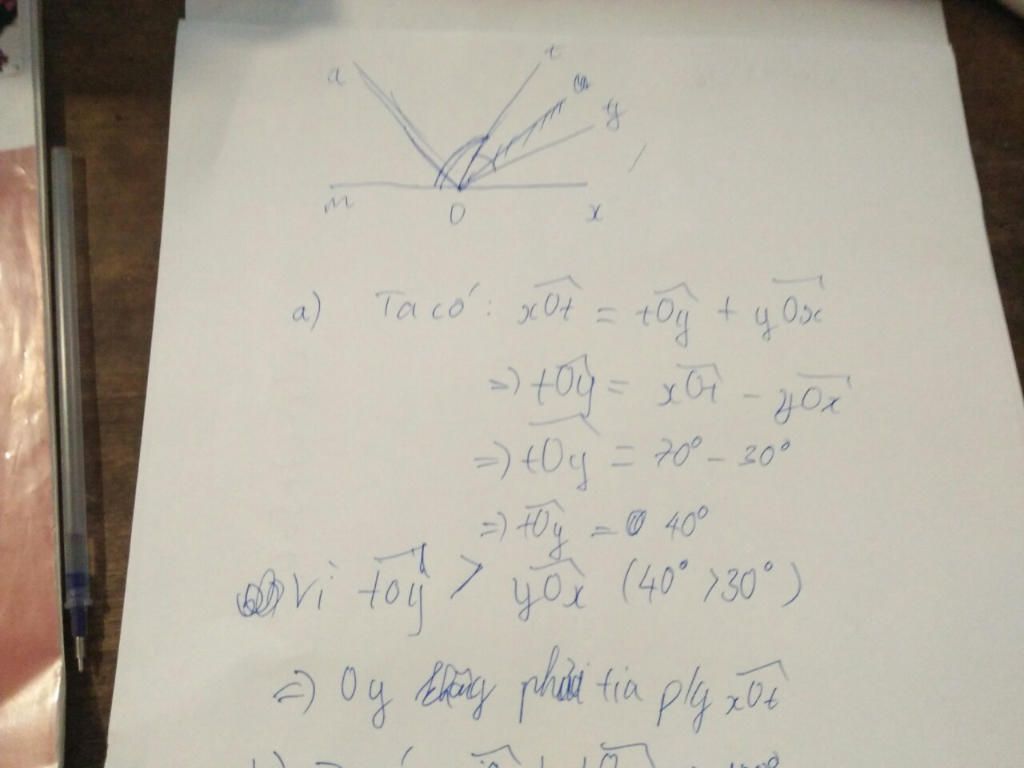 a t
y
m O x
a) Ta có: xOt = tOy + yOx
=) tOy = xOt - yOx
=) tOy = 70° - 30°
=) tOy = 40°
Vì tOy > yOx (40° > 30°)
=) Oy không phải tia p/g xOt